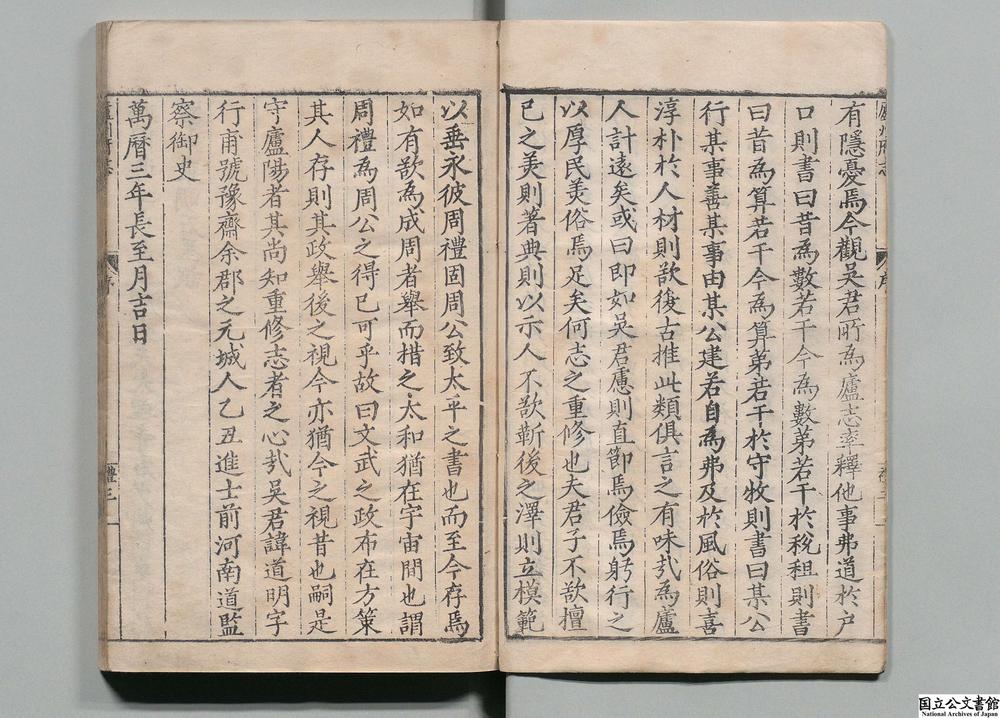 有隱憂焉今觀吳君所為廬志率釋他事弗道於户
口則書曰昔為數若干今為數若干於稅租則書
曰昔為算若干今為算若干於守牧則書曰某公
行某事善某事由某公建若自為弗及於風俗則喜
淳朴於人材則欲復古推此類俱言之有味哉為廬
人計遠矣或曰即如吳君慮則直節焉儉焉躬行之
以厚民美俗焉足矣何志之重修也夫君子不欲擅
己之美則著典則以示人不欲靳後之澤則立模範
以垂永彼周禮固周公致太平之書也而至今存焉
如有欲為成周者舉而措之太和猶在宇宙間也謂
周禮為周公之得已可乎故曰文武之政布在方策
其人存則其政舉後之視今亦猶今之視昔也嗣是
守廬陽者其尚知重修志者之心哉吳君諱道明字
行甫號豫齋余郡之元城人乙丑進士前河南道監
察御史
萬曆三年長至月吉日
序
禮三
国立公文書館
National Archives of Japan